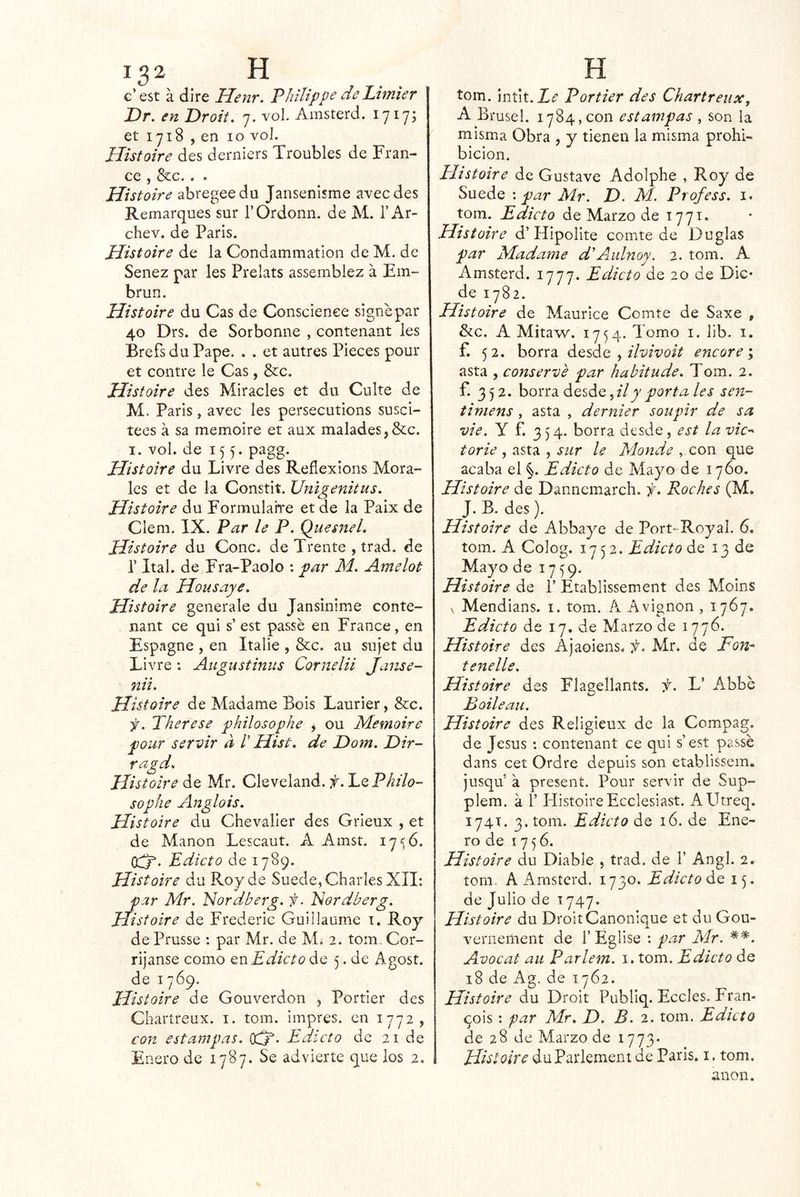 132 H
c'est à dire Henr. Philippe de Limier
Dr. en Droit. 7. vol. Amsterd. 1717;
et 1718 , en 10 vol.
Histoire des derniers Troubles de Fran-
ce , &c. . .
Histoire abregee du Jansenisme avec des
Remarques sur l'Ordonn. de M. l'Ar-
chev. de Paris.
Histoire de la Condammation de M. de
Senez par les Prelats assemblez à Em-
brun.
Histoire du Cas de Conscienee signè par
40 Drs. de Sorbonne , contenant les
Brefs du Pape. . . et autres Pieces pour
et contre le Cas , &c.
Histoire des Miracles et du Culte de
M. Paris , avec les persecutions susci-
tees à sa memoire et aux malades, &c.
1. vol. de 155. pagg.
Histoire du Livre des Reflexions Mora-
les et de la Constit. Unigenitus.
Histoire du Formulaire et de la Paix de
Clem. IX. Par le P. Quesnel.
Histoire du Conc. de Trente , trad. de
l' Ital. de Fra-Paolo : par M. Amelot
de la Housaye.
Histoire generale du Jansinime conte-
nant ce qui s' est passè en France, en
Espagne , en Italie , &c. au sujet du
Livre : Augustinus Cornelii Janse-
nii.
Histoire de Madame Bois Laurier, &c.
℣. Therese philosophe , ou Memoire
pour servir à l' Hist. de Dom. Dir-
ragd.
Histoire de Mr. Cleveland. ℣. Le Philo-
sophe Anglois.
Histoire du Chevalier des Grieux , et
de Manon Lescaut. A Amst. 1756.
☞. Edicto de 1789.
Histoire du Roy de Suede, Charles XII:
par Mr. Nordberg. ℣. Nordberg.
Histoire de Frederic Guillaume 1. Roy
de Prusse : par Mr. de M. 2. tom. Cor-
rijanse como en Edicto de 5. de Agost.
de 1769.
Histoire de Gouverdon , Portier des
Chartreux. 1. tom. impres. en 1772 ,
con estampas. ☞. Edicto de 21 de
Enero de 1787. Se advierte que los 2.
H
tom. intit. Le Portier des Chartreux,
A Brusel. 1784, con estampas , son la
misma Obra , y tienen la misma prohi-
bicion.
Histoire de Gustave Adolphe , Roy de
Suede : par Mr. D. M. Profess. 1.
tom. Edicto de Marzo de 1771.
Histoire d' Hipolite comte de Duglas
par Madame d'Aulnoy. 2. tom. A
Amsterd. 1777. Edicto de 20 de Dic-
de 1782.
Histoire de Maurice Comte de Saxe ,
&c. A Mitaw. 1754. Tomo 1. lib. 1.
f. 52. borra desde , ilvivoit encore ;
asta , conservè par habitude. Tom. 2.
f. 352. borra desde , il y porta les sen-
timens , asta , dernier soupir de sa
vie. Y f. 354. borra desde, est la vic-
torie , asta , sur le Monde , con que
acaba el §. Edicto de Mayo de 1760.
Histoire de Dannemarch. ℣. Roches (M.
J. B. des ).
Histoire de Abbaye de Port-Royal. 6.
tom. A Colog. 1752. Edicto de 13 de
Mayo de 1759.
Histoire de l' Etablissement des Moins
Mendians. 1. tom. A Avignon , 1767.
Edicto de 17. de Marzo de 1776.
Histoire des Ajaoiens. ℣. Mr. de Fon-
tenelle.
Histoire des Flagellants. ℣. L' Abbè
Boileau.
Histoire des Religieux de la Compag.
de Jesus : contenant ce qui s' est passè
dans cet Ordre depuis son etablissem.
jusqu' à present. Pour servir de Sup-
plem. à l' Histoire Ecclesiast. A Utreq.
1741. 3. tom. Edicto de 16. de Ene-
ro de 1756.
Histoire du Diable , trad. de l' Angl. 2.
tom. A Amsterd. 1730. Edicto de 15.
de Julio de 1747.
Histoire du Droit Canonique et du Gou-
vernement de l' Eglise : par Mr. **.
Avocat au Parlem. 1. tom. Edicto de
18 de Ag. de 1762.
Histoire du Droit Publiq. Eccles. Fran-
çois : par Mr. D. B. 2. tom. Edicto
de 28 de Marzo de 1773.
Histoire du Parlement de Paris. 1. tom.
anon.